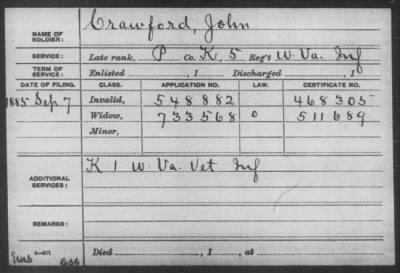 NAME OF SOLDIER: Crawford, John
SERVICE: Late rank, P Co. K, 5 Reg't W. Va. Inf
TERM OF SERVICE: Enlisted , 1 Discharged , 1
DATE OF FILING. CLASS. APPLICATION NO. LAW. CERTIFICATE NO.
1885 Sep 7 Invalid, 548882 468305
Widow, 733568 0 511689
Minor,
ADDITIONAL SERVICES: K 1 W. Va. Vet Inf
REMARKS:
Died , 1 , at